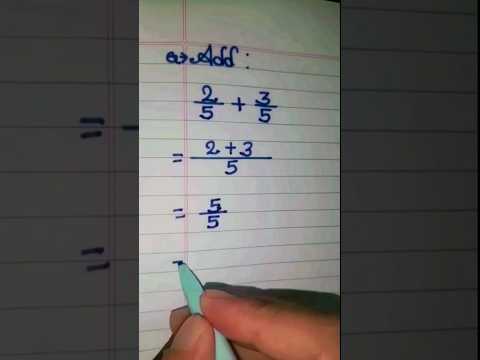 a> Add :
2/5 + 3/5
= 2+3/5
= 5/5
=